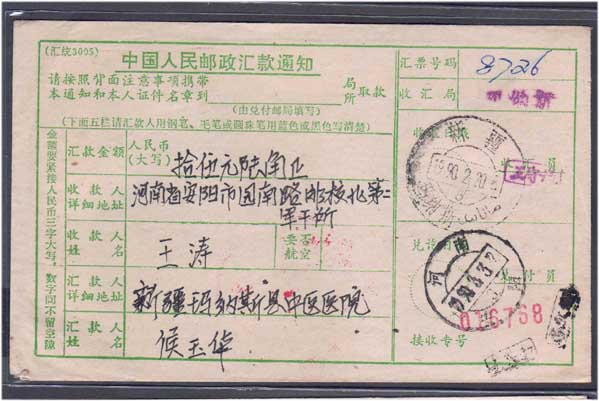 (汇统3005)
中国人民邮政汇款通知
请按照背面注意事项携带
本通知和本人证件名章到
局
所
取款
(由兑付邮局填写)
(下面五栏请汇款人用钢笔、毛笔或圆珠笔用蓝色或黑色写清楚)
金额要紧接人民币三字大写，数字间不留空隙
汇款金额
人民币
(大写)
拾伍元陆角正
收款人
详细地址
河南省安阳市园南路邮校北第二
军干所
收款人
姓名
王涛
要否
航空
汇款人
详细地址
新疆玛纳斯县中医医院
汇款人
姓名
侯玉华
汇票号码
8726
收汇局
新疆
1990.2.20
河南
1990.3.3
016768
接收专号